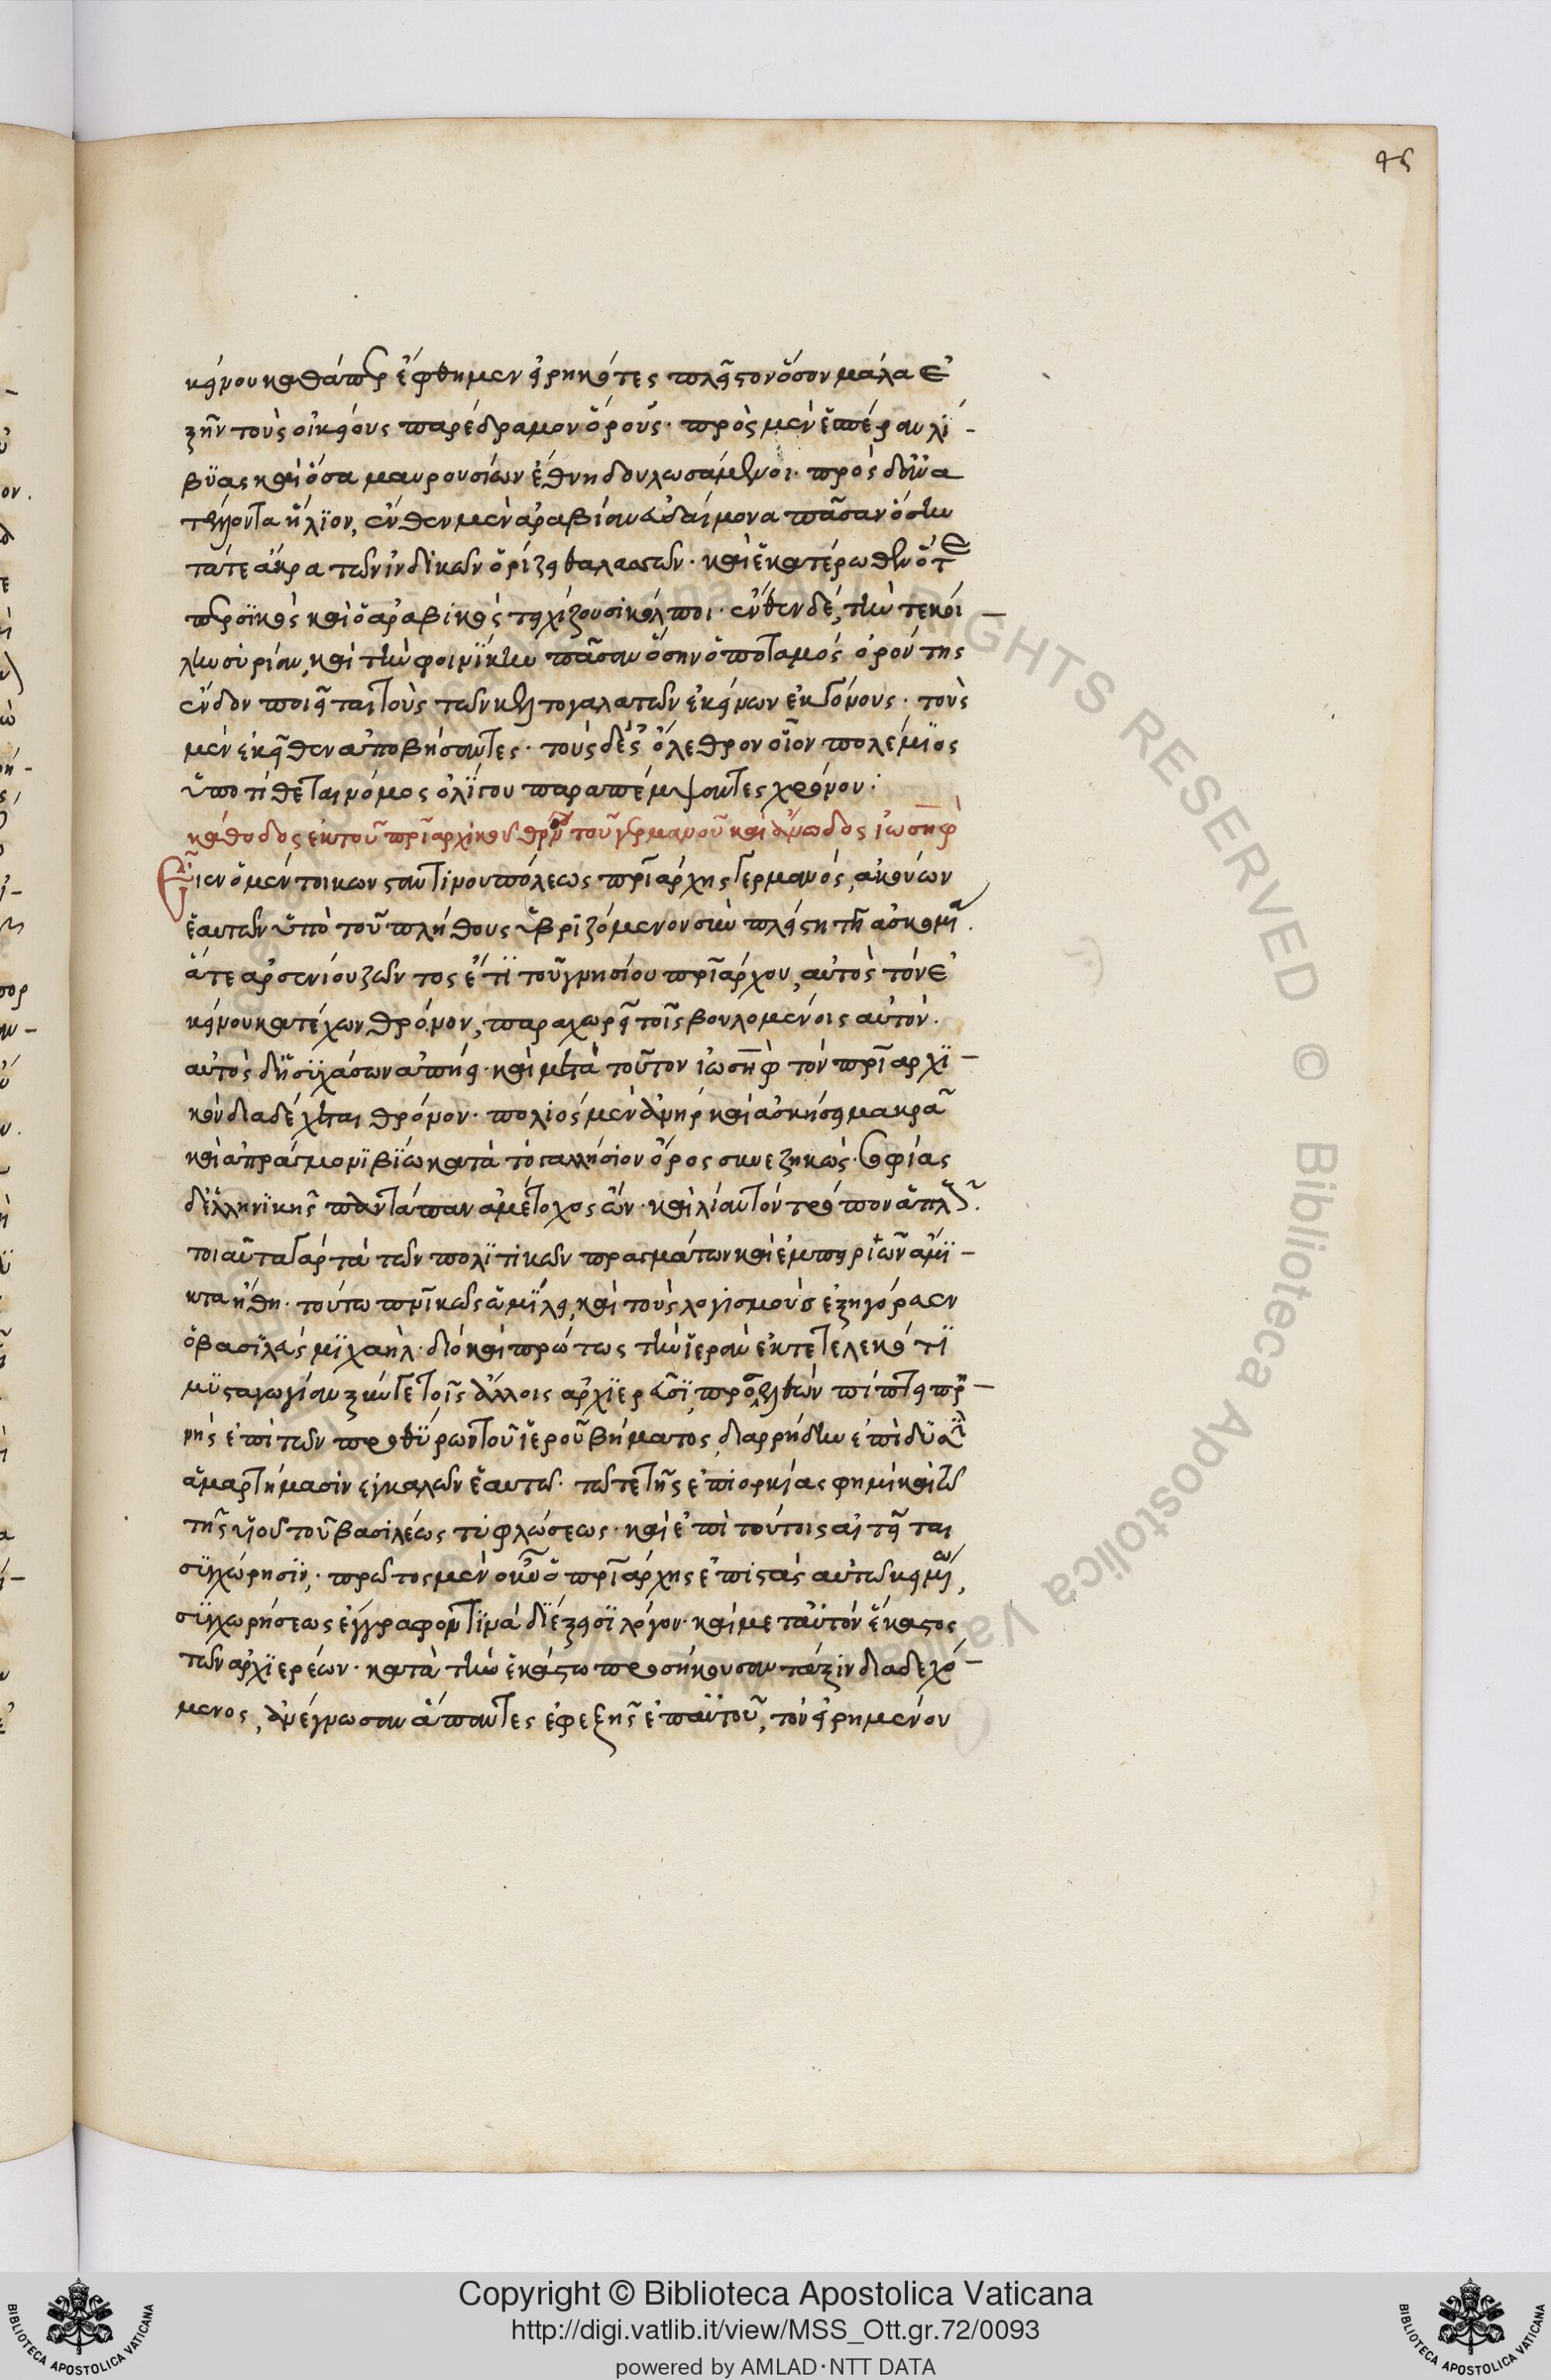 45
κείνου καθάπερ ἔφθημεν εἰρηκότες πλεῖστον ὅσον μάλα ἐ
ζῆν τοὺς οἰκείους παρέδραμον ὅρους· πρὸς μὲν ἑσπέραν λι-
βύας καὶ ὅσα μαυρουσίων ἔθνη δουλωσάμενοι· πρὸς δ' αὖ ἀ
τέλλοντα ἥλιον, ἔνθεν μὲν ἀραβίαν εὐδαίμονα πᾶσαν ὅσην
τά τε ἄκρα τῶν ἰνδικῶν ὁρίζει θαλασσῶν· καὶ ἑκατέρωθεν ὅ τε
περσικὸς καὶ ὁ ἀραβικὸς τειχίζουσι κόλποι· ἔνθεν δέ, τήν τε κοί-
λην συρίαν, καὶ τὴν φοινίκην πᾶσαν ὅσην ὁ ποταμὸς ὀρόντης
ἔνδον ποιεῖται τοὺς τῶν κελτογαλατῶν ἐκείνων ἐκγόνους· τοὺς
μὲν ἐκεῖθεν ἀποβήσαντες· τοὺς δὲ ἐς ὄλεθρον οἷον πολέμιος
ὑποτίθεται νόμος ὀλίγου παραπέμψαντες χρόνου:
κάθοδος ἐκ τοῦ πριαρχικοῦ θρόνου τοῦ γερμανοῦ καὶ ἄνοδος ἰωσὴφ
Εἶεν ὁ μέντοι κωνσταντίνου πόλεως πριάρχης γερμανός, ἀκούων
ἑαυτὸν ὑπὸ τοῦ πλήθους ὑβριζόμενον σὺν πλείστῃ τῇ ἀσκομῇ.
ἅτε ἀρσενίου ζῶντος ἔτι τοῦ γνησίου πριάρχου, αὐτὸς τὸν ἐ
κείνου κατέχων θρόνον, παραχωρεῖ τοῖς βουλομένοις αὐτόν.
αὐτὸς δ' ἡσυχάσων ἀπῄει· καὶ μετὰ τοῦτον ἰωσὴφ τὸν πριαρχι-
κὸν διαδέχεται θρόνον· πολιὸς μὲν ἀνὴρ καὶ ἀσκήσει μακρᾷ
καὶ ἀπράγμονι βίῳ κατὰ τὸ γαλλήσιον ὄρος συνεζηκώς· σοφίας
δ' ἑλληνικῆς παντάπαν ἀμέτοχος ὤν· καὶ λίαν τὸν τρόπον ἁπλοῦς.
τοιαῦτα γὰρ τὰ τῶν πολιτικῶν πραγμάτων καὶ ἐμπειριῶν ἀμι-
κτα ἤθη· τούτῳ πνικῶς ὡμίλει, καὶ τοὺς λογισμοὺς ἐξηγόρευεν
ὁ βασιλεὺς μιχαήλ· διὸ καὶ πρώτως τὴν ἱερὰν ἐκτετελεκότι
μυσταγωγίαν ξύν γε τοῖς ἄλλοις ἀρχιερεῦσι, προσελθὼν πίπτει πρ-
νὴς ἐπὶ τῶν προθύρων τοῦ ἱεροῦ βήματος, διαρρήδην ἐπὶ δυσὶν
ἁμαρτήμασιν ἐγκαλῶν ἑαυτῷ· τῷ τε τῆς ἐπιορκίας φημὶ καὶ τῷ
τῆς υἱοῦ τοῦ βασιλέως τυφλώσεως· καὶ ἐπὶ τούτοις αἰτεῖται
συγχώρησιν· πρῶτος μὲν οὖν ὁ πριάρχης ἐπιστὰς αὐτῷ κειμένῳ,
συγχωρήσεως ἔγγραφόν τινα διέξεισι λόγον· καὶ μετ' αὐτὸν ἕκαστος
τῶν ἀρχιερέων· κατὰ τὴν ἑκάστῳ προσήκουσαν τάξιν διαδεχό-
μενος, ἀνέγνωσαν ἅπαντες ἐφεξῆς ἐπ' αὐτοῦ, τὸν εἰρημένον
ALL RIGHTS RESERVED © Biblioteca Apostolica Vaticana
Copyright © Biblioteca Apostolica Vaticana
http://digi.vatlib.it/view/MSS_Ott.gr.72/0093
powered by AMLAD·NTT DATA
BIBLIOTECA APOSTOLICA VATICANA
BIBLIOTECA APOSTOLICA VATICANA